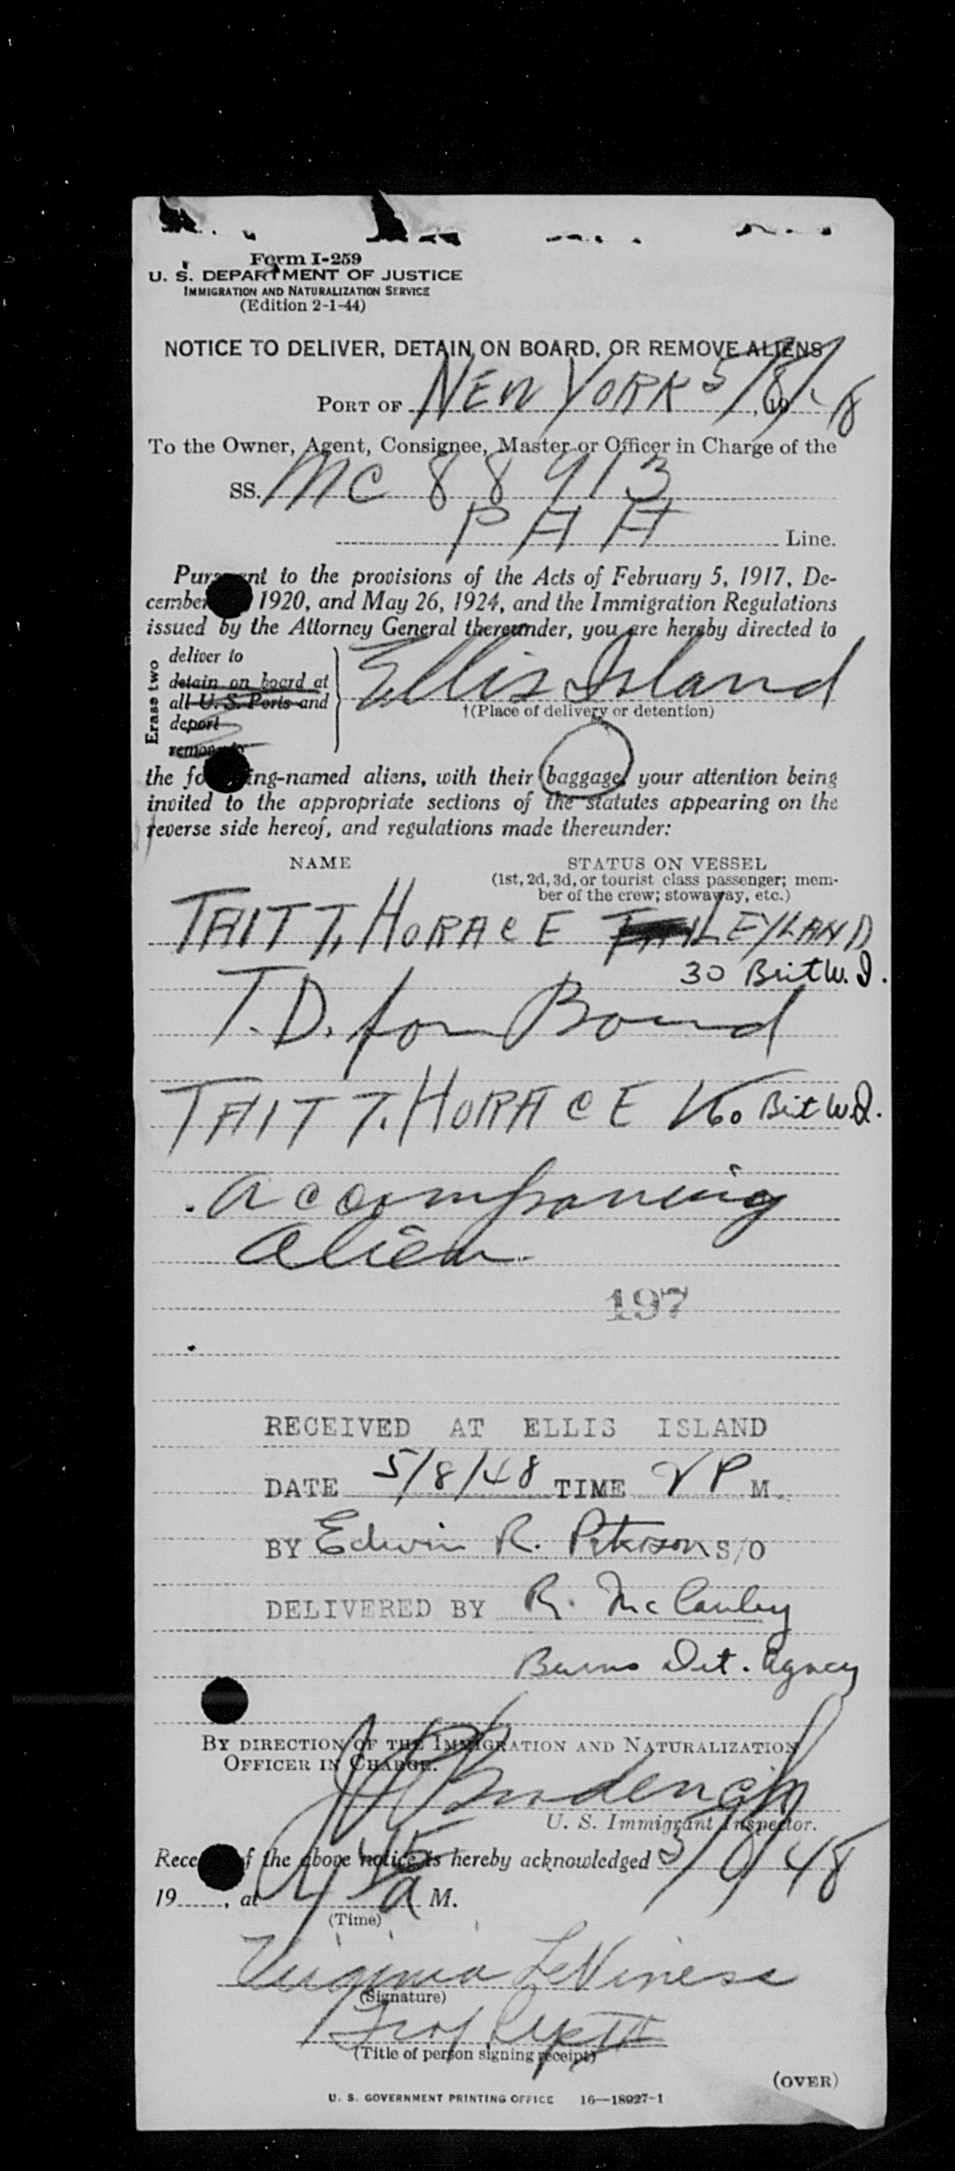 Form I-259
U. S. DEPARTMENT OF JUSTICE
IMMIGRATION AND NATURALIZATION SERVICE
(Edition 2-1-44)
NOTICE TO DELIVER, DETAIN ON BOARD, OR REMOVE ALIENS
PORT OF NEW YORK 5/8/48
To the Owner, Agent, Consignee, Master or Officer in Charge of the
SS. MC 88913
PAA Line.
Pursuant to the provisions of the Acts of February 5, 1917, De-
cember 1920, and May 26, 1924, and the Immigration Regulations
issued by the Attorney General thereunder, you are hereby directed to
Erase two
deliver to
detain on board at
all U. S. Ports and
deport
remove to
Ellis Island
†(Place of delivery or detention)
the following-named aliens, with their baggage, your attention being
invited to the appropriate sections of the statutes appearing on the
reverse side hereof, and regulations made thereunder:
NAME STATUS ON VESSEL
(1st, 2d, 3d, or tourist class passenger; mem-
ber of the crew; stowaway, etc.)
TAITT, HORACE LEYLAND
30 Brit W. I.
T.D. for Bond
TAITT T. HORACE V 60 Brit W.I.
accompaning
alien
197
RECEIVED AT ELLIS ISLAND
DATE 5/8/48 TIME 2 P M.
BY Edwin R. Peterson S/O
DELIVERED BY R. McCauley
Burns Det. Agency
BY DIRECTION OF THE IMMIGRATION AND NATURALIZATION
OFFICER IN CHARGE.
U. S. Immigrant Inspector.
Receipt of the above notice is hereby acknowledged 5/8/48
19, at 45 a M.
(Time)
Virginia LeViness
(Signature)
(Title of person signing receipt)
(OVER)
U. S. GOVERNMENT PRINTING OFFICE 16—18027-1